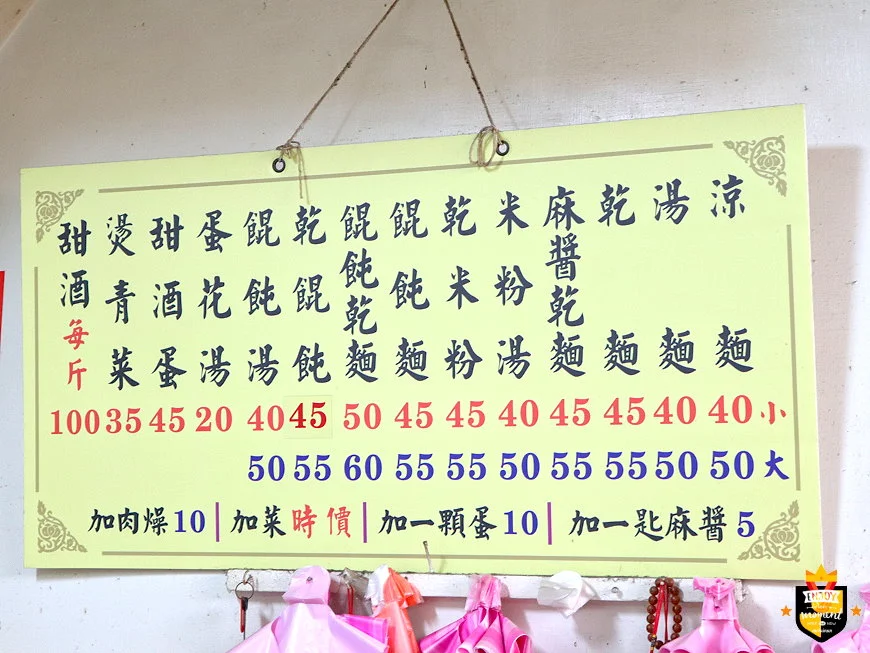 涼麵
湯麵
乾麵
麻醬乾麵
米粉湯
乾米粉
餛飩麵
餛飩乾麵
乾餛飩
餛飩湯
蛋花湯
甜酒蛋
燙青菜
甜酒每斤
100 35 45 20 40 45 50 45 45 40 45 45 40 40 小
50 55 60 55 55 50 55 55 50 50 大
加肉燥10 加菜時價 加一顆蛋10 加一匙麻醬5
ENJOY
moment